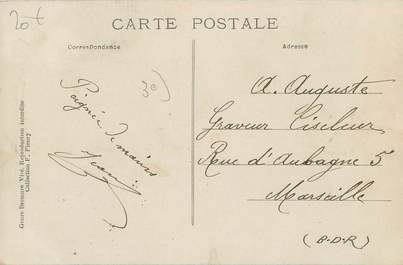 20€
CARTE POSTALE
Correspondance
Adresse
Poignée de mains
A. Auguste
Graveur Ciseleur
Rue d'Aubagne 5
Marseille
(B-D-R)
Reproduction interdite
Collection F. Fleury